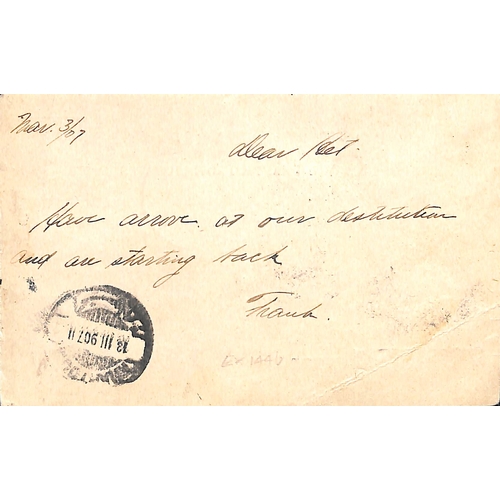 Mar. 3/07
Dear Kit.
Have arrove at our destitution
and are starting back
Frank.
13 III 907 11
Ex 1440